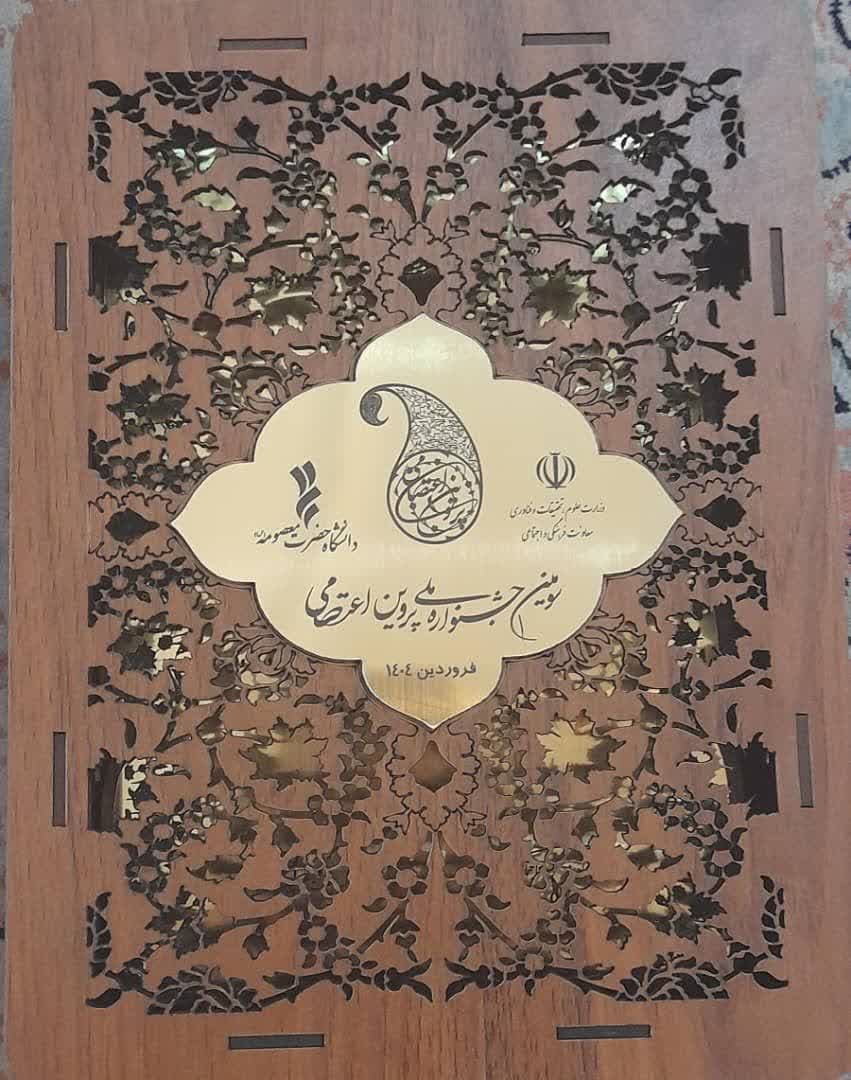 جشنواره ملی پروین اعتصامی
وزارت علوم، تحقیقات و فناوری
معاونت فرهنگی و اجتماعی
دانشگاه حضرت معصومه
سومین جشنواره ملی پروین اعتصامی
فروردین ۱۴۰۴